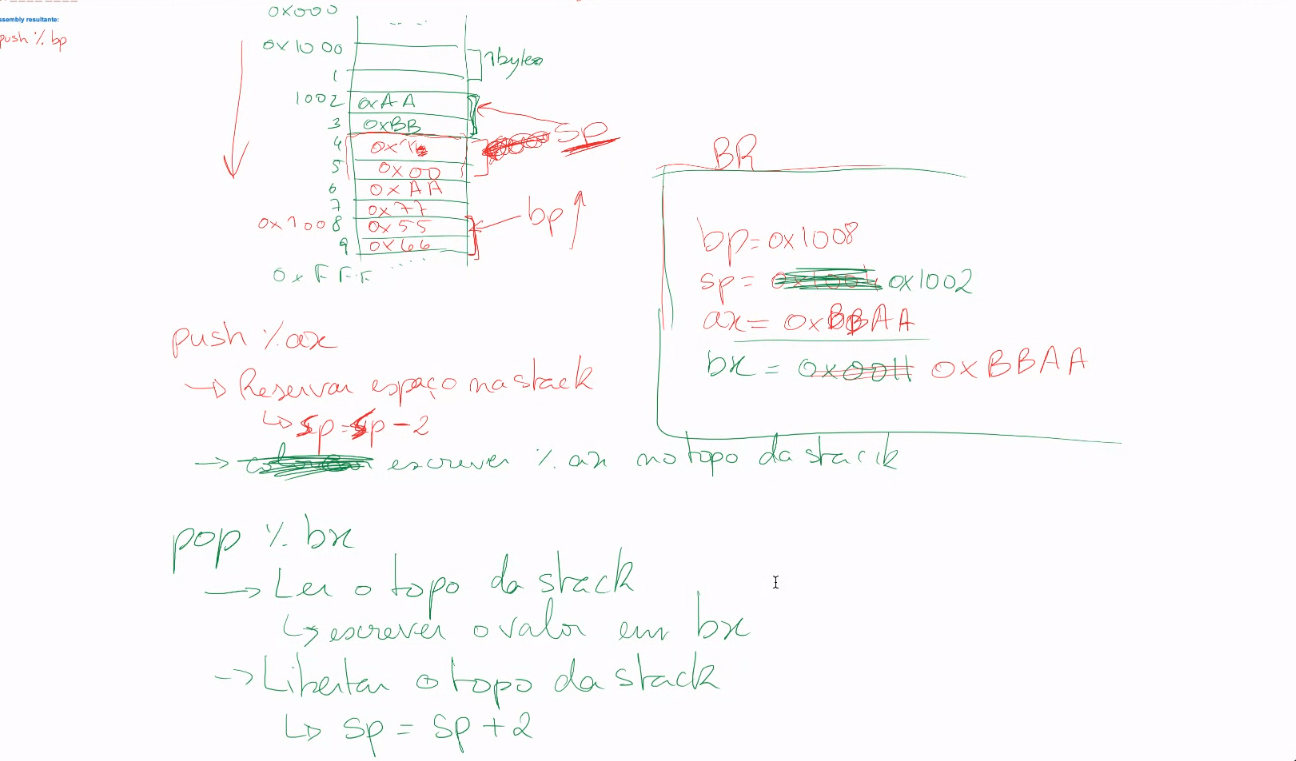 Assembly resultante:
push % bp
0x000
0x1000
1 byte
1
1002 0xAA
3 0xBB
sp
4
5 0x00
6 0xAA
7 0x77
bp
0x1008 0x55
9 0x66
0xFFF
BR
bp=0x1008
sp= 0x1002
ax= 0xBBAA
bx = 0x0011 0xBBAA
push % ax
→ Reservar espaço na stack
↳ sp=sp-2
→ escrever % ax no topo da stack
pop % bx
→ Ler o topo da stack
↳ escrever o valor em bx
→ Libertar o topo da stack
↳ sp = sp+2